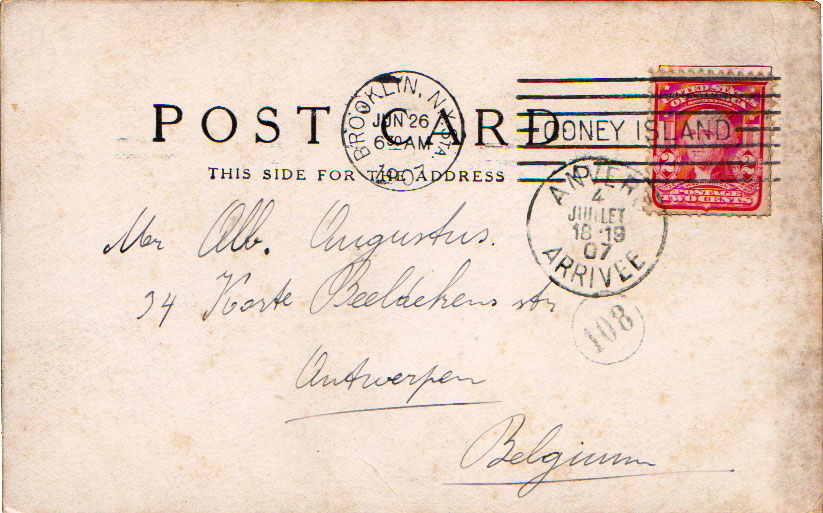 POST CARD
THIS SIDE FOR THE ADDRESS
BROOKLYN, N.Y. STA.
JUN 26
6 30 AM
1907
CONEY ISLAND
UNITED STATES
POSTAGE
2 2
TWO CENTS
ANVERS
4
JUILLET
18-19
07
ARRIVEE
108
Mr Alb. Augustus.
34 Korte Beeldekens str
Antwerpen
Belgium